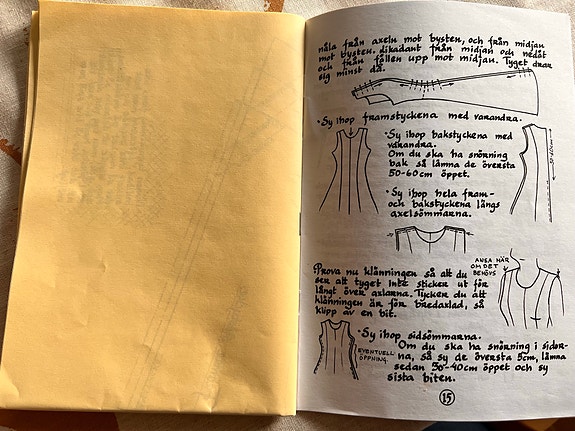 nåla från axeln mot bysten, och från midjan
mot bysten. likadant från midjan och nedåt
och från fållen upp mot midjan. Tyget drar
sig minst då.
• Sy ihop framstyckena med varandra.
• Sy ihop bakstyckena med
varandra.
Om du ska ha snörning
bak så lämna de översta
50-60 cm öppet.
50-60 cm
• Sy ihop hela fram-
och bakstyckena längs
axelsömmarna.
ANSA HÄR
OM DET
BEHÖVS
Prova nu klänningen så att du
ser att tyget inte sticker ut för
långt över axlarna. Tycker du att
klänningen är för bredaxlad, så
klipp av en bit.
• Sy ihop sidsömmarna.
EVENTUELL
ÖPPNING
Om du ska ha snörning i sidor-
na, så sy de översta 5cm, lämna
sedan 30-40 cm öppet och sy
sista biten.
15